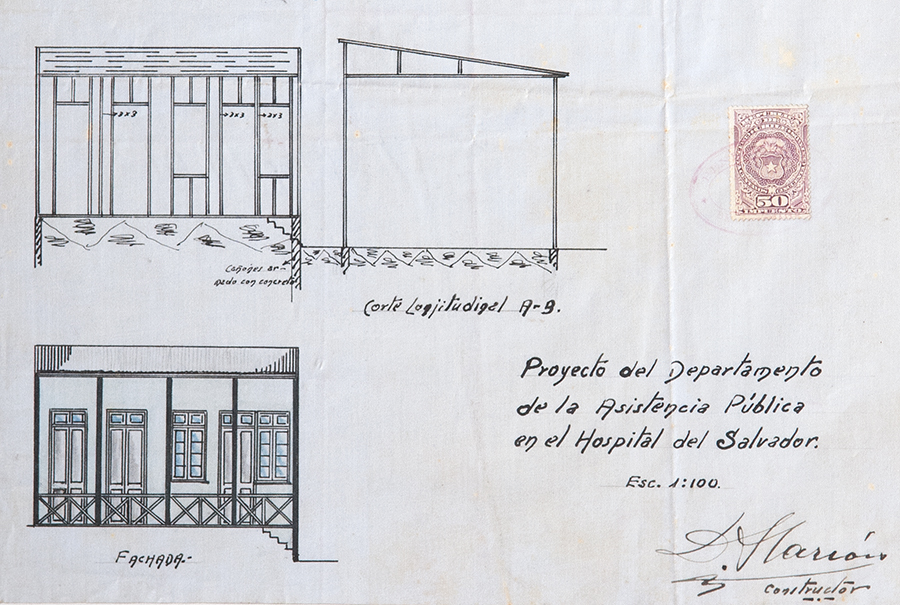 2x3
2x3
2x3
Cañones ar-
mado con concreto
Corte Longitudinal A-B.
50
Proyecto del Departamento
de la Asistencia Pública
en el Hospital del Salvador.
Esc. 1:100.
FACHADA.-
Constructor